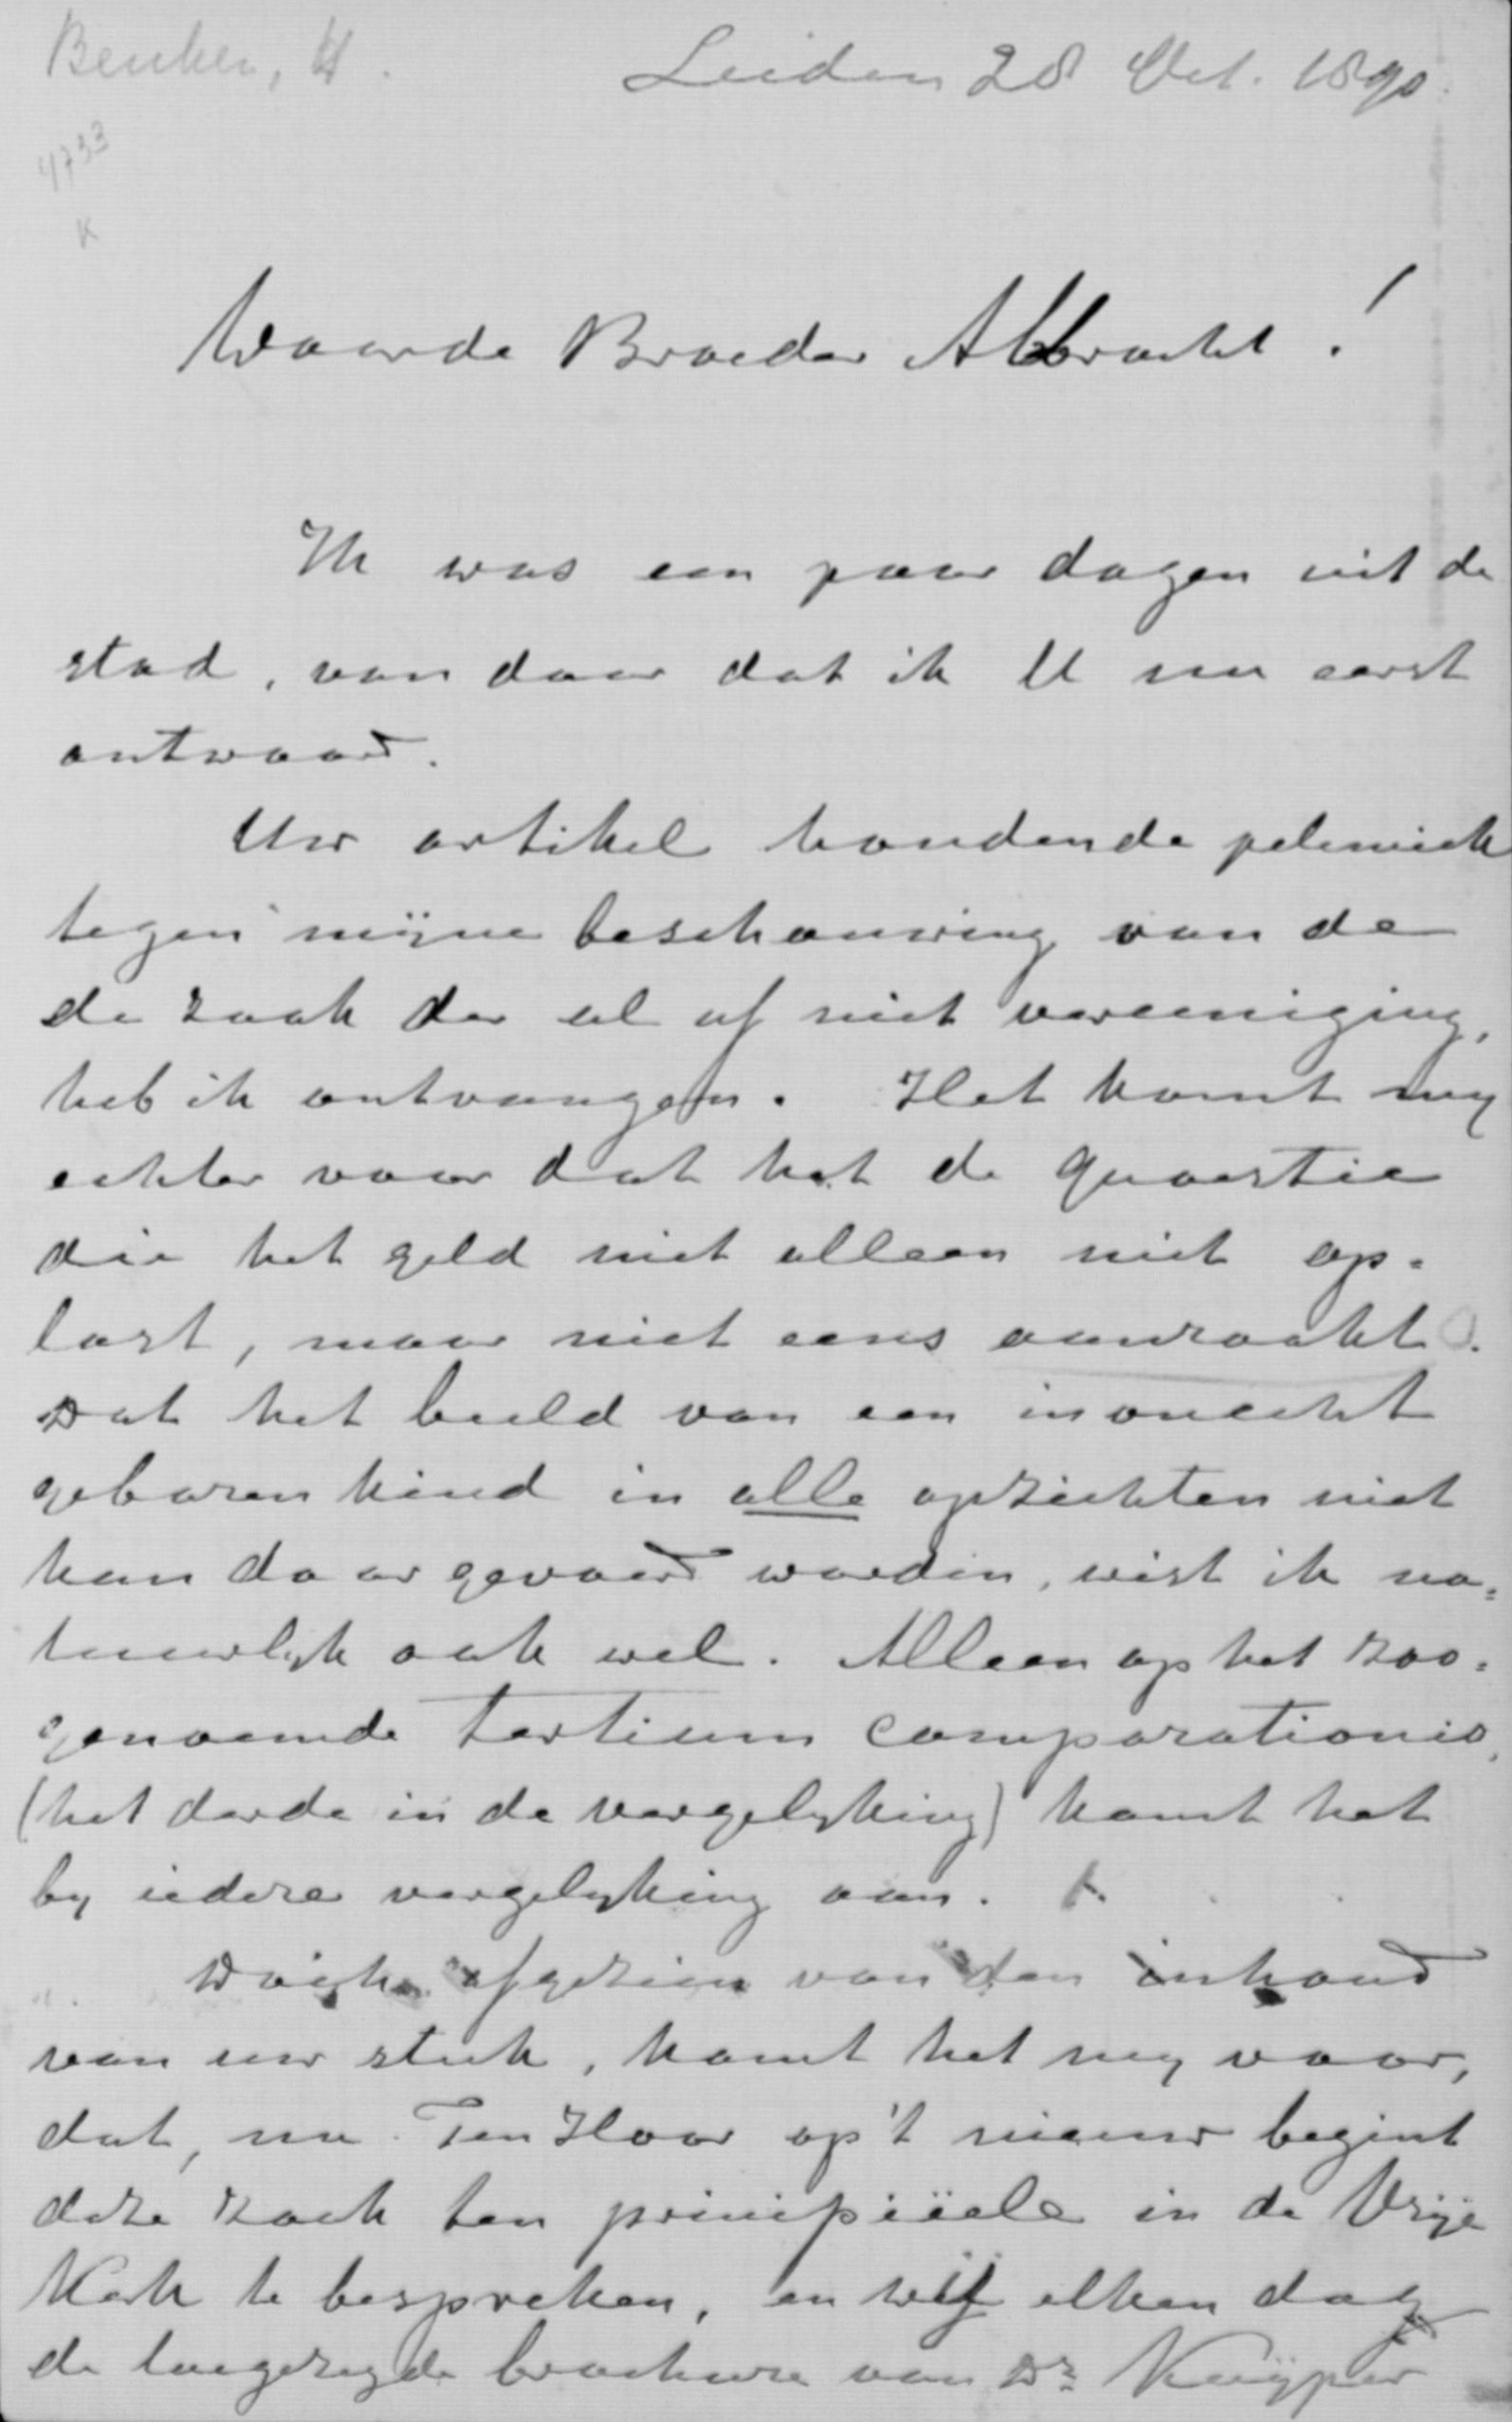 Beuker, H.
Leiden 28 Oct. 1890.
4733
K
Waarde Broeder Albracht!
Ik was een paar dagen uit de
stad, van daar dat ik U nu eerst
antwoord.
Uw artikel houdende polemiek
tegen mijne beschouwing van de
de zaak der al of niet vereeniging,
heb ik ontvangen. Het komt my
echter voor dat het de quaestie
die het geld niet alleen niet op=
lost, maar niet eens aanraakt.
Dat het beeld van een in onecht
geboren kind in alle opzichten niet
kan door gevoerd worden, wist ik na=
tuurlyk ook wel. Alleen op het zoo=
genoemde tertium comparationis,
(het derde in de vergelyking) komt het
by iedere vergelyking aan.
Doch afgezien van den inhoud
van uw stuk, komt het my voor,
dat, nu Ten Hoor op 't nieuw begint
deze zaak ten principiëele in de Vrije
Kerk te bespreken, en wij elken dag
de toegezegde brochure van Dr. Kuÿper